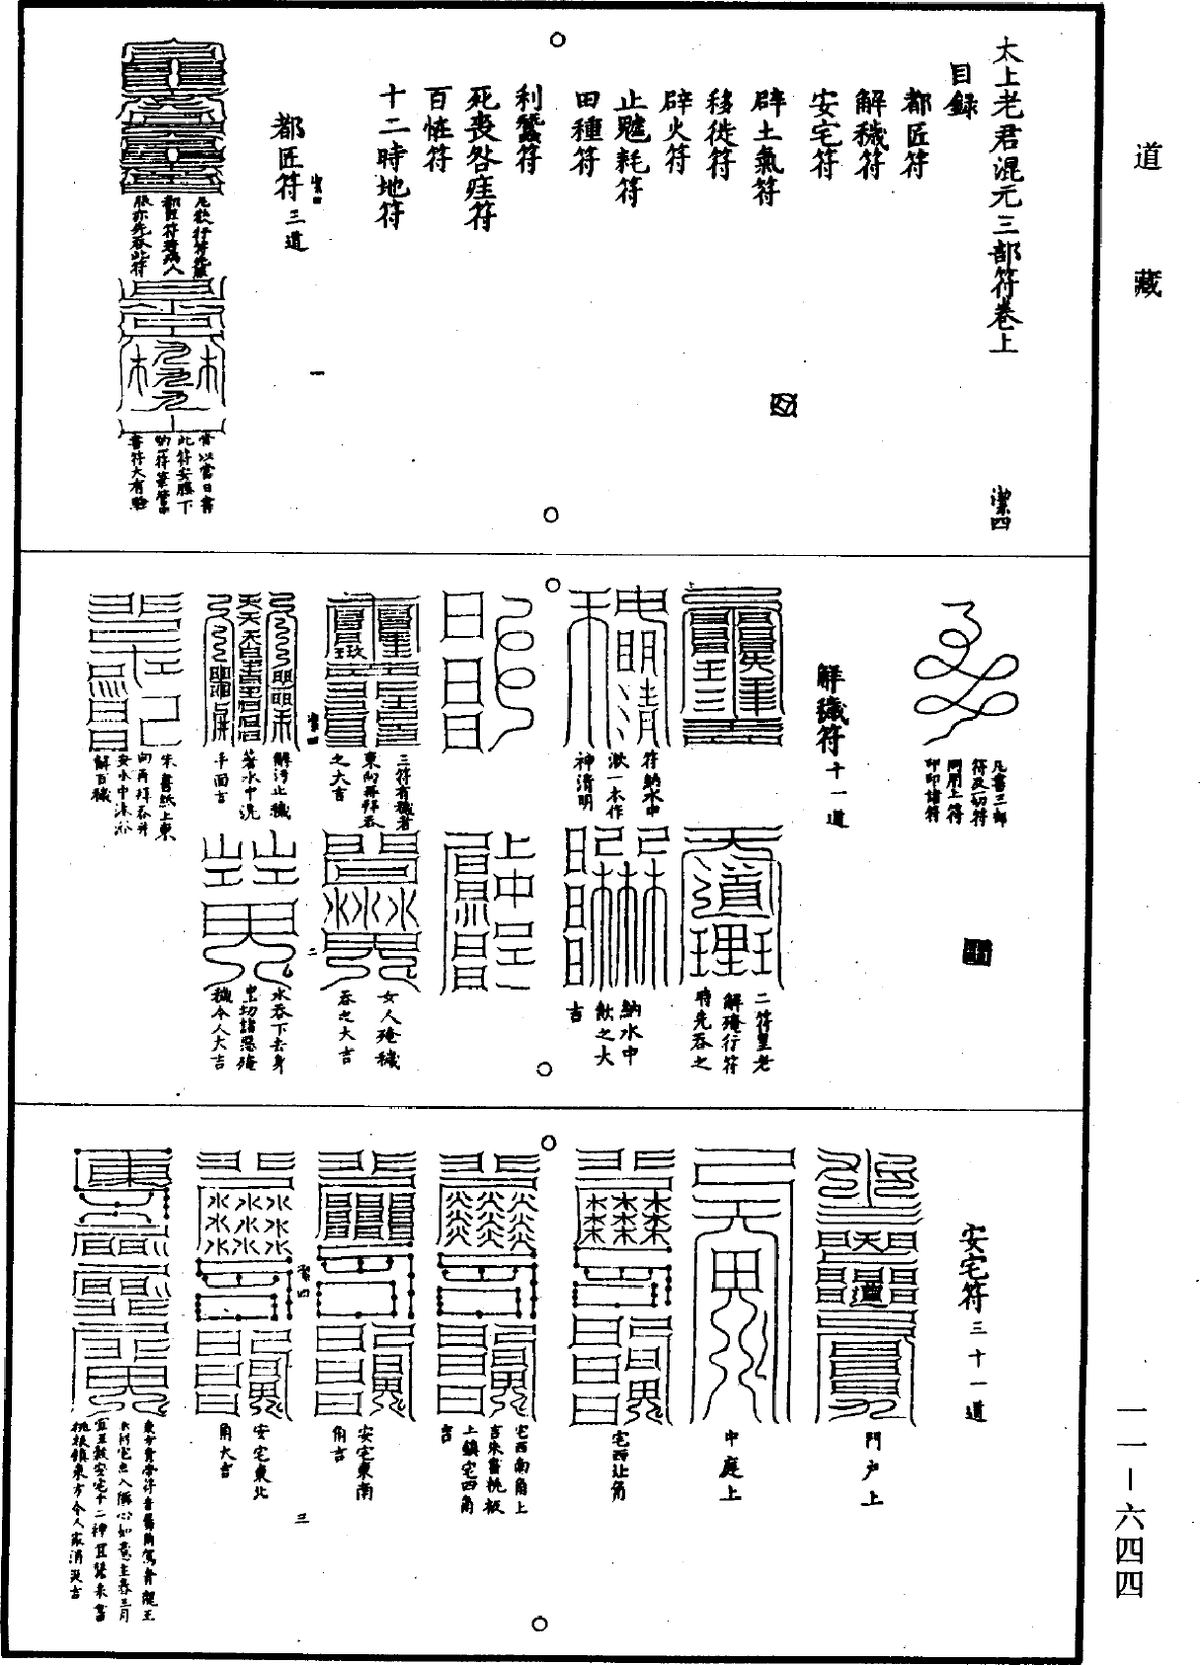 道藏
太上老君混元三部符卷上
潔四
目録
都匠符
解穢符
安宅符
辟土氣符
移徙符
辟火符
止魑耗符
田種符
利蠶符
死喪咎疰符
百怪符
十二時地符
潔四
一
都匠符三道
凡欲行符先服
都匠符請病人
服亦先吞此符
常以當日書
此符安膝下
書符大有驗
凡書三部
符及一切符
同用上符
印印諸符
解穢符十一道
二符皇老
解殗行符
時先吞之
符納水中
漱一本作
神清明
納水中
飲之大
吉
三符有穢者
東向再拜吞
之大吉
女人殗穢
吞之大吉
潔四
二
解污止穢
著水中洗
手面吉
水吞下去身
中切諸惡殗
穢令人大吉
朱書紙上東
向再拜吞并
安水中沐浴
解百穢
安宅符三十一道
門戶上
中庭上
宅西北角
宅西南角上
吉朱書桃板
上鎮宅四角
吉
安宅東南
角吉
潔四
三
安宅東北
角大吉
桃板鎮東方令人家消災吉
一一－六四四